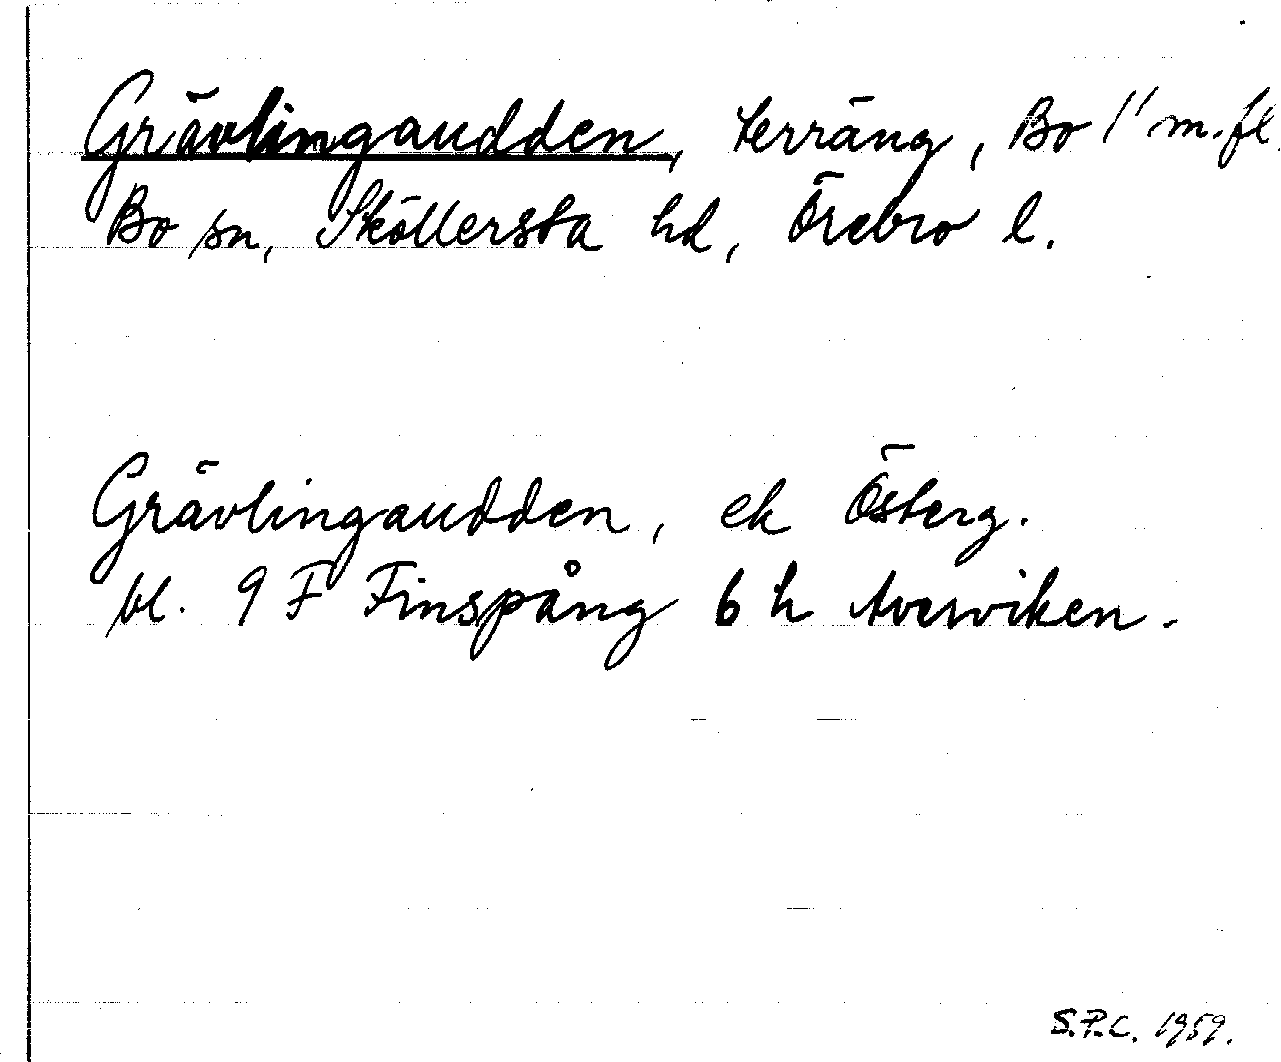 Grävlingaudden, terräng, Bo 1¹ m.fl.
Bo sn, Sköllersta hd, Örebro l.
Grävlingaudden, ek Österg.
bl. 9 F Finspång 6 h Averviken.
S.P.C. 1959.